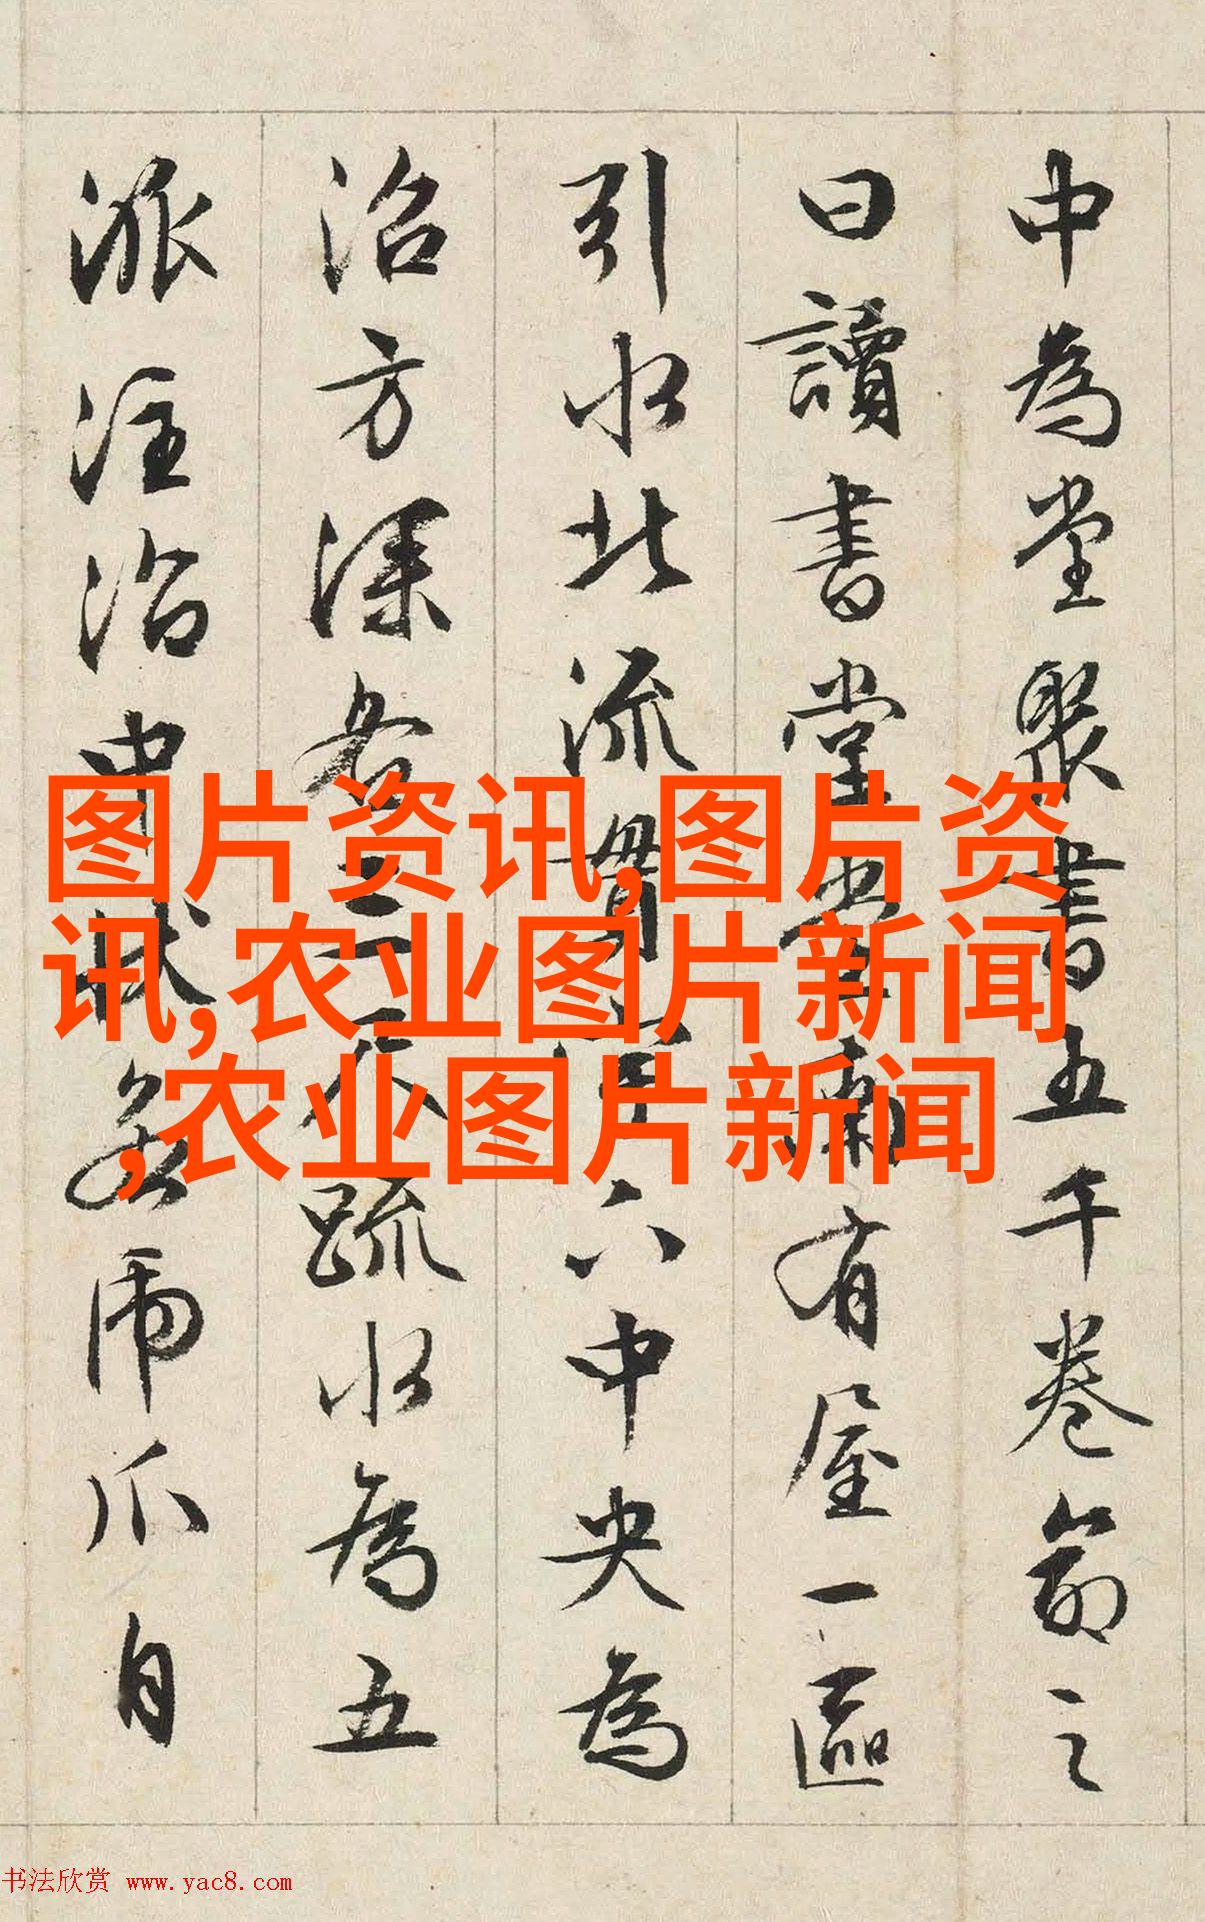 中為堂聚書五千卷命之
曰讀書堂堂南有屋一區
引水北流貫宇下中央為
沼方深各三尺疏水為五
派注沼中狀若虎爪自
图片资讯,图片资
讯,农业图片新闻
,农业图片新闻
书法欣赏 www.yac8.com